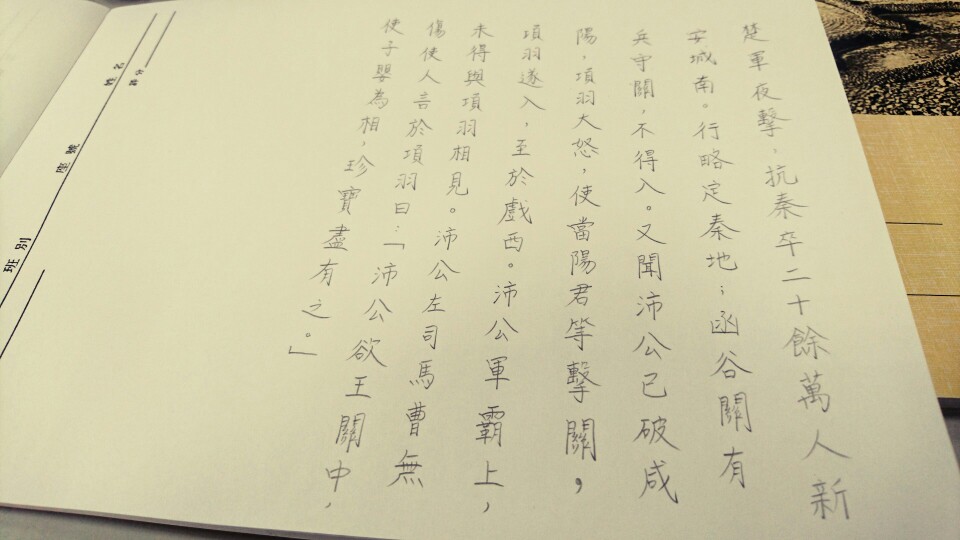 楚軍夜擊，抗秦卒二十餘萬人新
安城南。行略定秦地；函谷關有
兵守關，不得入。又聞沛公已破咸
陽，項羽大怒，使當陽君等擊關，
項羽遂入，至於戲西。沛公軍霸上，
未得與項羽相見。沛公左司馬曹無
傷使人言於項羽曰：「沛公欲王關中，
使子嬰為相，珍寶盡有之。」
姓名
座號
班別